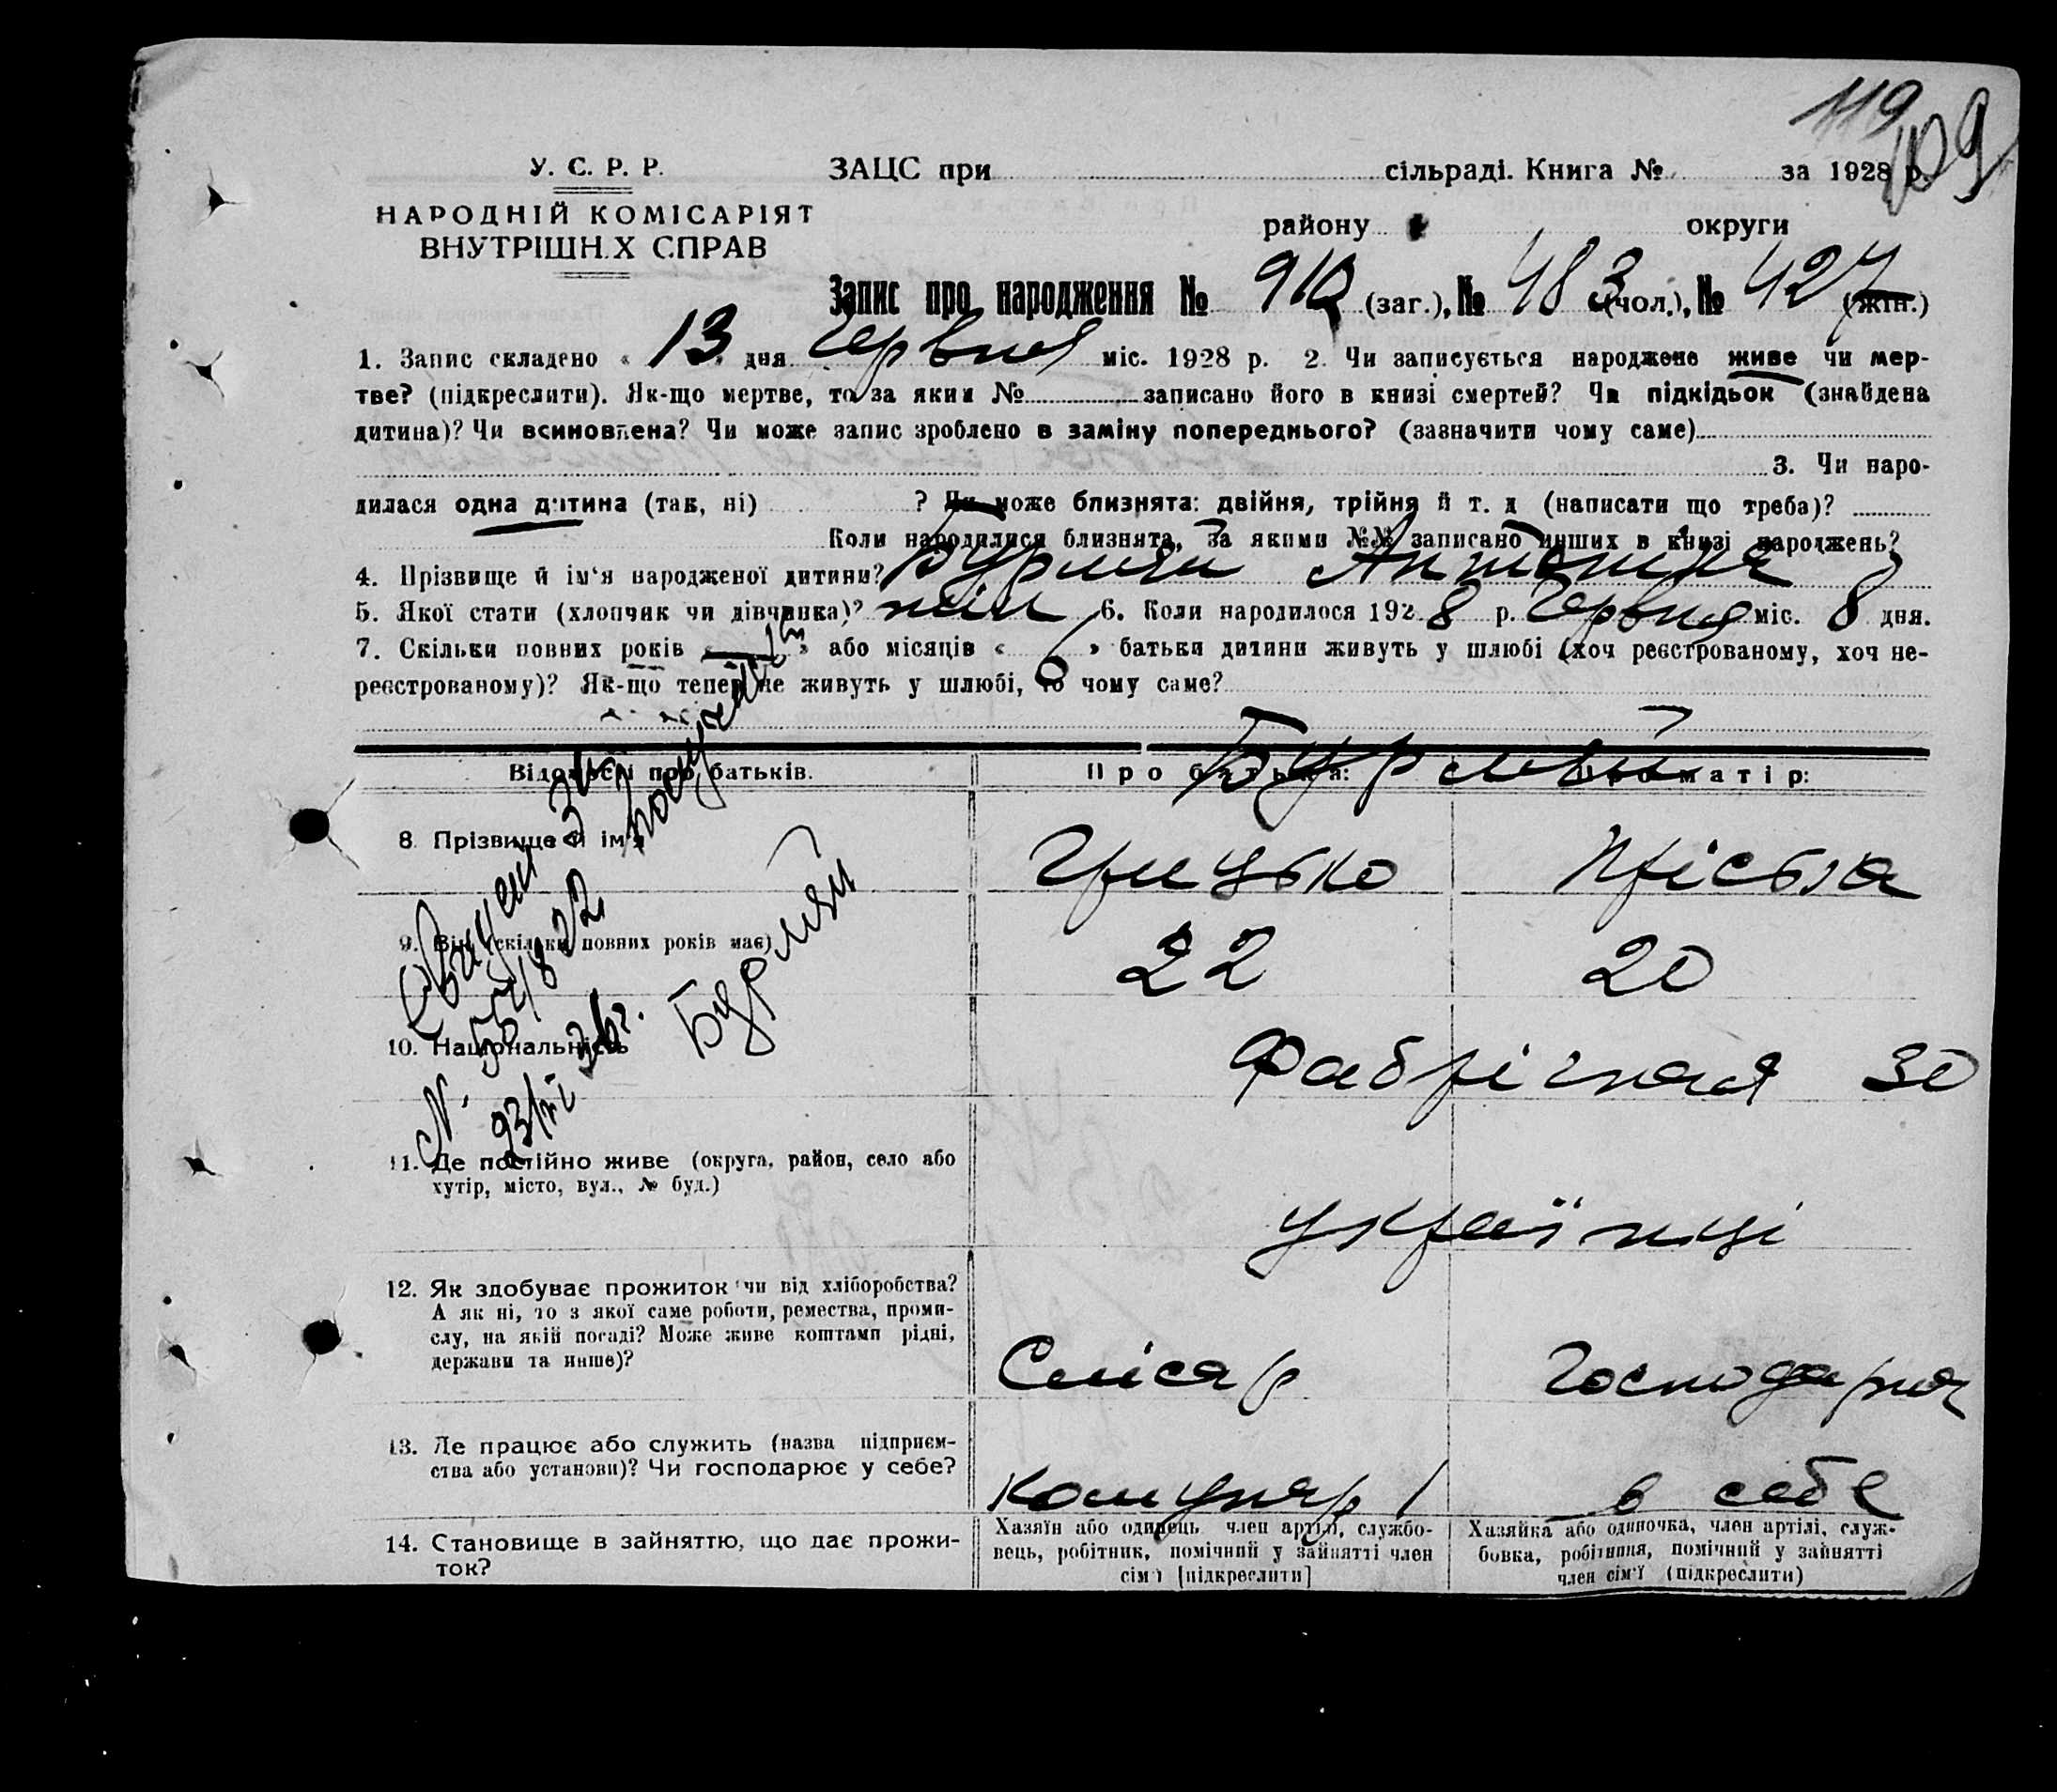 119
109
У. С. Р. Р.
НАРОДНІЙ КОМІСАРІЯТ
ВНУТРІШН.Х СПРАВ
ЗАЦС при сільраді. Книга № за 1928 р.
району округи
Запис про народження № 910 (заг.), № 483 (чол.), № 427 (жін.)
1. Запис складено « 13 » дня Червня міс. 1928 р. 2. Чи записується народжене живе чи мер-
тве? (підкреслити). Як-що мертве, то за яким № записано його в книзі смертей? Чи підкідьок (знайдена
дитина)? Чи всиновлена? Чи може запис зроблено в заміну попереднього? (зазначити чому саме)
3. Чи наро-
дилася одна дитина (так, ні) ? Чи може близнята: двійня, трійня й т. д (написати що треба)?
Коли народилися близнята, за якими №№ записано инших в книзі народжень?
4. Прізвище й ім‘я народженої дитини? Бурмяй Антоніна
5. Якої стати (хлопчик чи дівчинка)? жін 6. Коли народилося 1928 р. Червня міс. 8 дня.
7. Скільки повних років « » або місяців « » батьки дитини живуть у шлюбі (хоч реєстрованому, хоч не-
реєстрованому)? Як-що тепер не живуть у шлюбі, то чому саме?
Відомості про батьків. Про батька: Про матір:
Бурмяй
8. Прізвище й ім‘я Грицько Пріська
9. Вік (скільки повних років має) 22 20
10. Національність Фабрічная 30
11. Де постійно живе (округа, район, село або
хутір, місто, вул., № буд.)
українці
12. Як здобуває прожиток чи від хліборобства?
А як ні, то з якої саме роботи, ремества, проми-
слу, на якій посаді? Може живе коштами рідні,
держави та инше)?
Слісар Господарня
13. Де працює або служить (назва підприєм-
ства або установи)? Чи господарює у себе?
Комунар в себе
14. Становище в зайняттю, що дає прожи-
ток?
Хазяїн або одинець член артілі, службо-
вець, робітник, помічний у зайнятті член
сім‘ї [підкреслити]
Хазяйка або одиночка, член артілі, служ-
бовка, робітниця, помічний у зайнятті
член сім‘ї (підкреслити)
Бурмяй